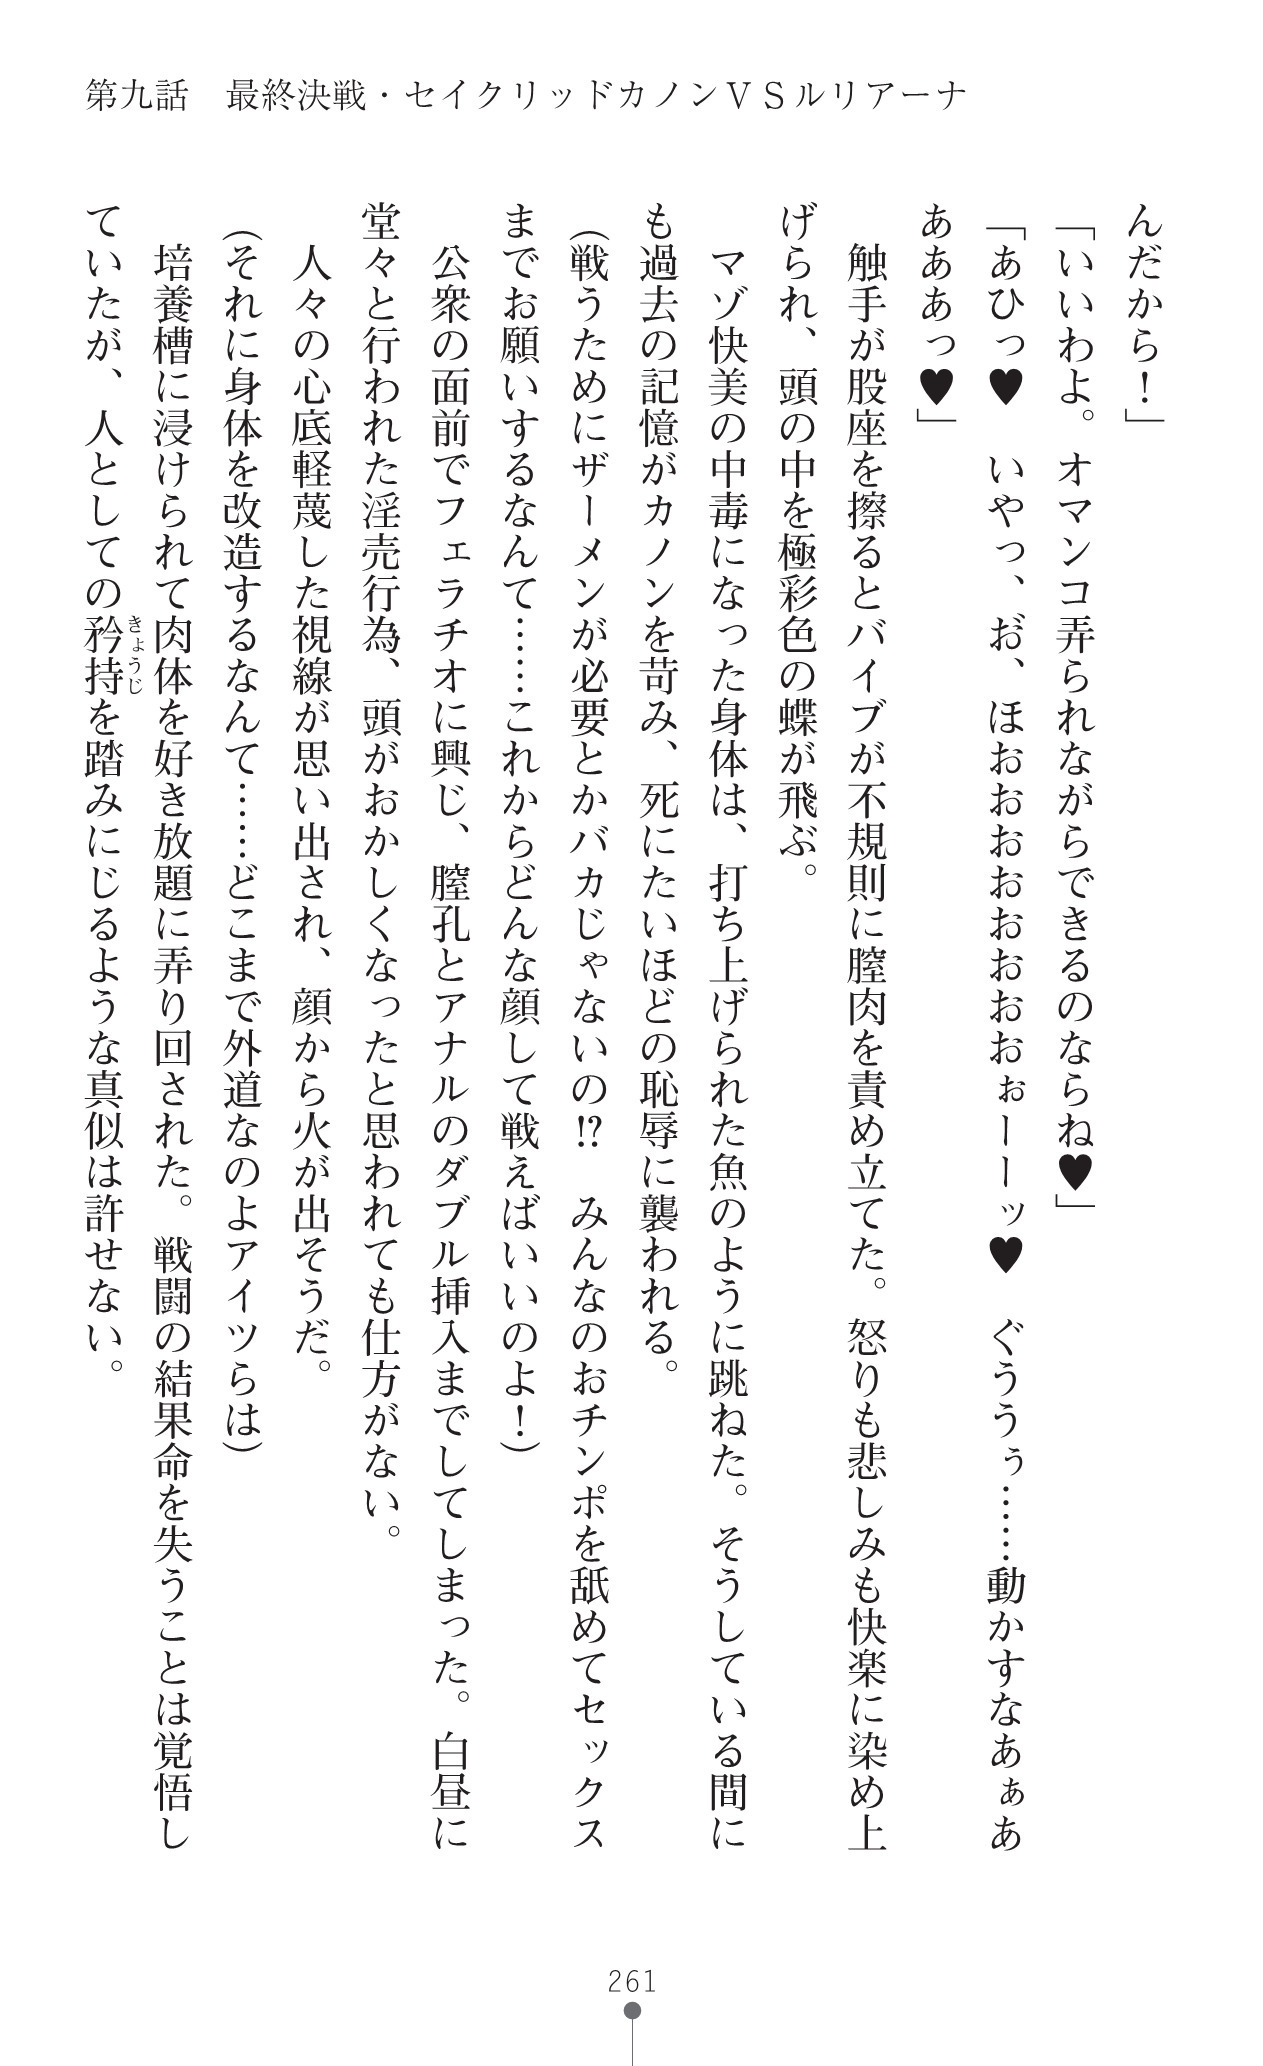 第九話　最終決戦・セイクリッドカノンＶＳルリアーナ
んだから！」
「いいわよ。オマンコ弄られながらできるのならね♥」
「あひっ♥　いやっ、お゛、ほおおおおおおおおぉーーッ♥　ぐううぅ……動かすなあぁあ
あああっ♥」
　触手が股座を擦るとバイブが不規則に膣肉を責め立てた。怒りも悲しみも快楽に染め上
げられ、頭の中を極彩色の蝶が飛ぶ。
　マゾ快美の中毒になった身体は、打ち上げられた魚のように跳ねた。そうしている間に
も過去の記憶がカノンを苛み、死にたいほどの恥辱に襲われる。
（戦うためにザーメンが必要とかバカじゃないの⁉　みんなのおチンポを舐めてセックス
までお願いするなんて……これからどんな顔して戦えばいいのよ！）
　公衆の面前でフェラチオに興じ、膣孔とアナルのダブル挿入までしてしまった。白昼に
堂々と行われた淫売行為、頭がおかしくなったと思われても仕方がない。
　人々の心底軽蔑した視線が思い出され、顔から火が出そうだ。
（それに身体を改造するなんて……どこまで外道なのよアイツらは）
　培養槽に浸けられて肉体を好き放題に弄り回された。戦闘の結果命を失うことは覚悟し
ていたが、人としての矜持きょうじを踏みにじるような真似は許せない。
261